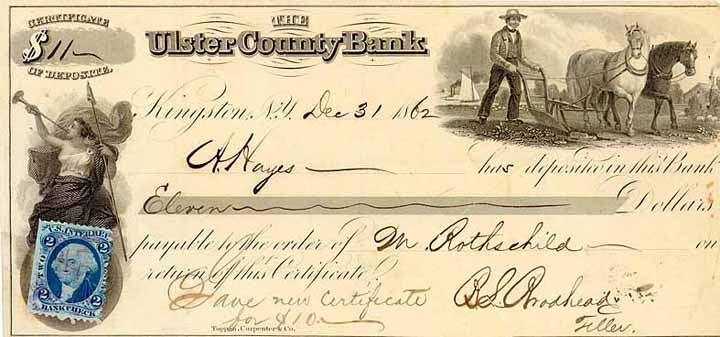 CERTIFICATE
$11
OF DEPOSITE.
THE
Ulster County Bank
Kingston, N.Y. Dec 31 1862
A. Hayes has deposited in this Bank
Eleven Dollars
payable to the order of M. Rothschild on
return of this Certificate
new certificate
for $10
Teller.
Toppan, Carpenter & Co.
U.S. INTER. REV.
2 2
TWO CENTS
2 2
BANK CHECK